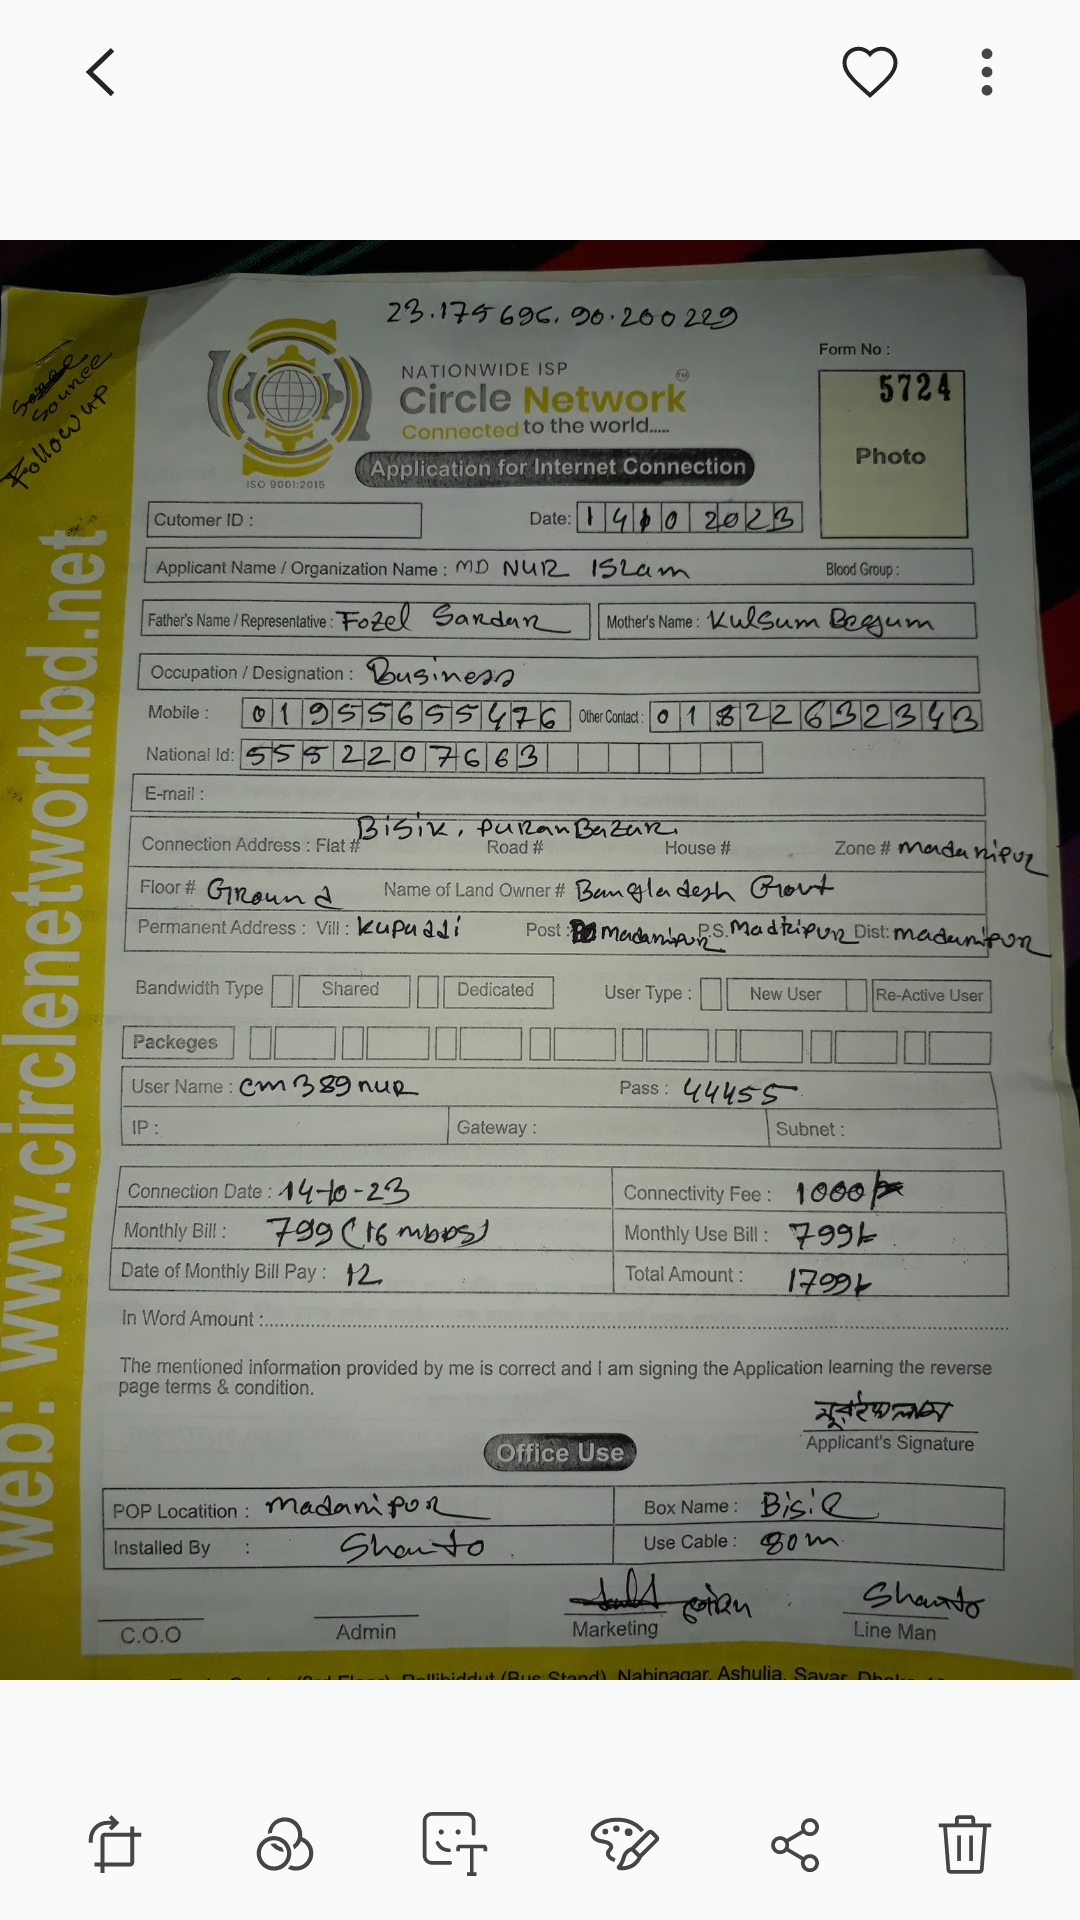 23.175696, 90.200229
Form No :
5724
Photo
source
Follow up
NATIONWIDE ISP
Circle Network
TM
Connected to the world.....
ISO 9001:2015
Application for Internet Connection
Cutomer ID :
Date: 14 10 2023
Applicant Name / Organization Name : MD NUR ISLam Blood Group :
Father's Name / Representative : Fozel Sardar Mother's Name : Kulsum Begum
Occupation / Designation : Business
Mobile : 01955655476 Other Contact : 01822632343
National Id: 5552207663
E-mail :
Bisik, puran Bazar.
Connection Address : Flat # Road # House # Zone # madaripur
Floor # Ground Name of Land Owner # Bangladesh Govt
Permanent Address : Vill : kupaddi Post : madaripur P.S. Madripur Dist: madaripur
Bandwidth Type Shared Dedicated User Type : New User Re-Active User
Packeges
User Name : cm389nur Pass : 44455
IP : Gateway : Subnet :
Connection Date : 14-10-23 Connectivity Fee : 1000/=
Monthly Bill : 799 (16 mbps) Monthly Use Bill : 799/-
Date of Monthly Bill Pay : 12 Total Amount : 1799/-
In Word Amount :
The mentioned information provided by me is correct and I am signing the Application learning the reverse
page terms & condition.
নুর ইসলাম
Applicant's Signature
Office Use
POP Locatition : madaripur Box Name : Bisik
Installed By : Shanto Use Cable : 80m
Shanto
C.O.O Admin Marketing Line Man
Pallibiddut (Bus Stand), Nabinagar, Ashulia, Savar, Dhaka
web: www.circlenetworkbd.net